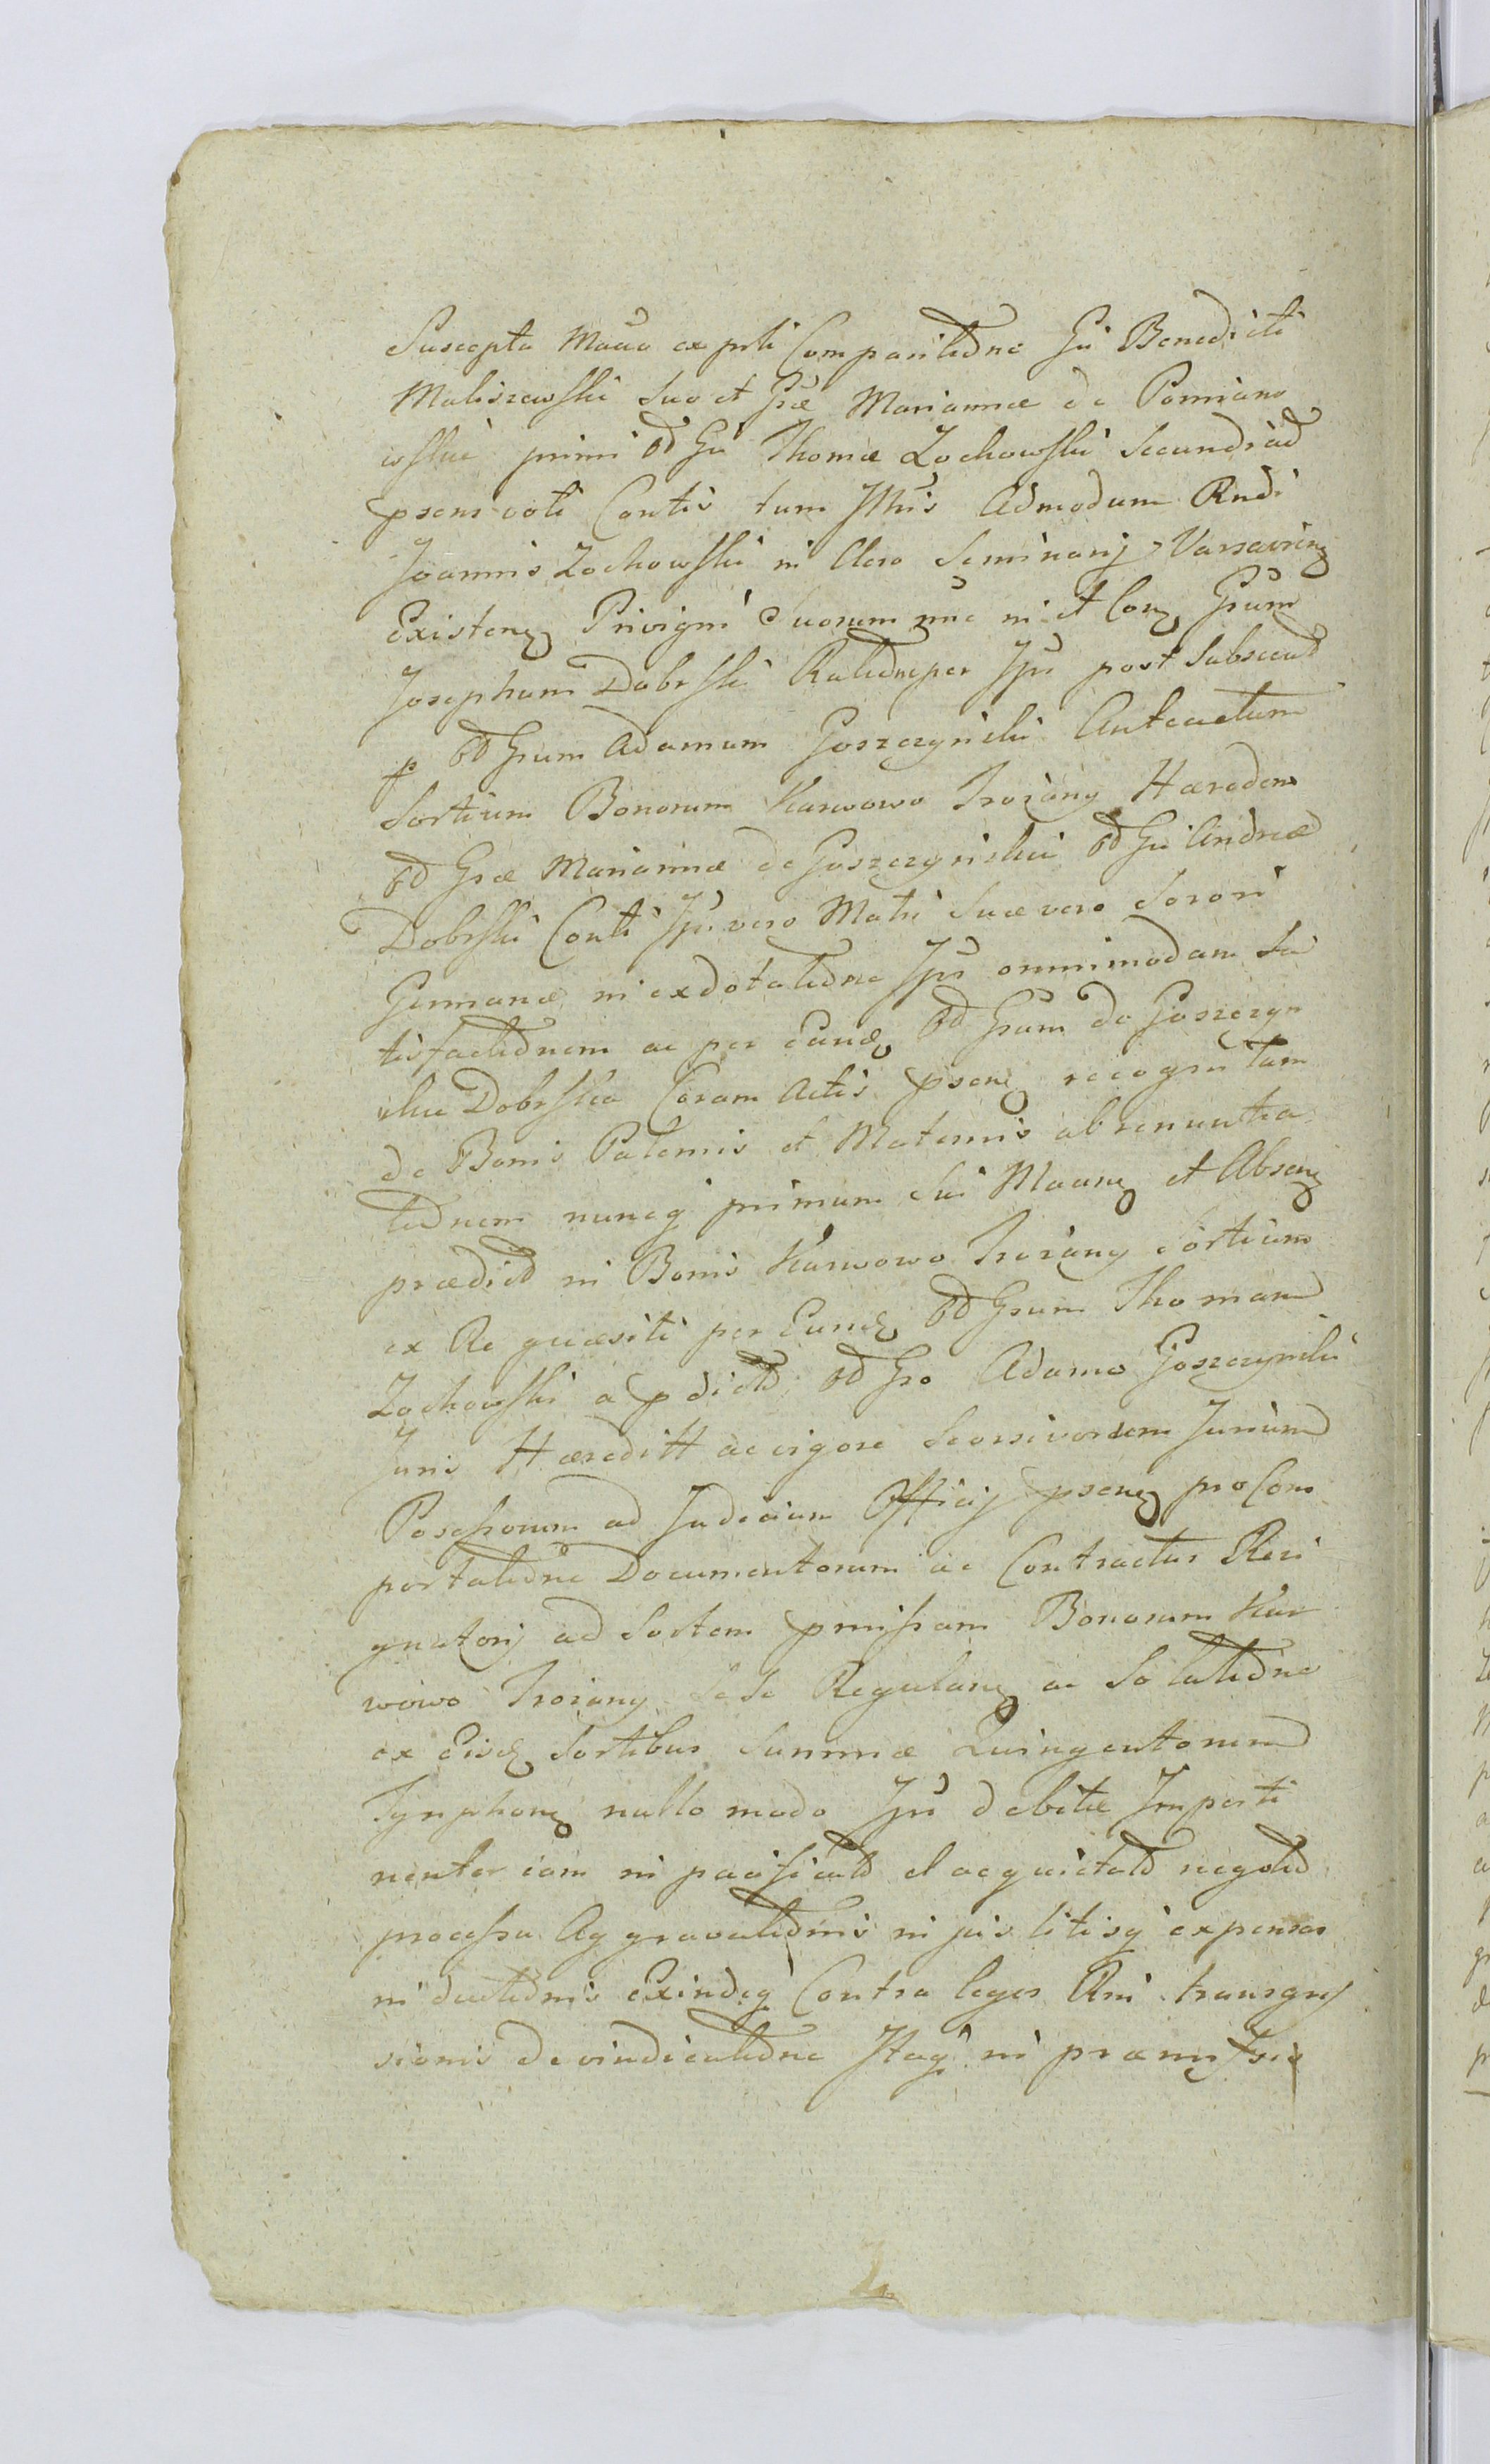 Suscepta Maua ex prti Comparitōne Gñi Benedicti
Maliszewski Suo et Gsæ Mariannæ de Pomiano
wskie primi Od Gñi Thomæ Zochowski Secundi ad
psens voti Contis tum Jllris Admodum Rndi
Joannis Zochowski in Clero Seminarij Varsavien
Existen Privigni Suorum nnc in et Con Gsum
Josephum Dobrski Ratiõne per Jpñ post Subsecut
p Od Gsum Adamum Goszczynski Anteactum
Sortium Bonorum Karwowo Trojany Hæredem
Od Gsæ Mariannæ de Goszczynskie Od Gñi Andreæ
Dobrski Conti Jpi vero Matri Suæ vero Sorori
Germanæ in exdotatiõne Jpñ omnimodam Sa
tisfactiõnem ac per Eand Od Gsam de Goszczyn
skie Dobrska Coram Actis psen recognitam
de Bonis Paternis et Maternis abrenuntia
tiõnem nuncq primum Sui Mauen et Absen
prædict in Bonis Karwowo Trojany Sortium
ex Re quæsiti per Eund Od Gsum Thomam
Zochowski a pdicto Od Gso Adamo Goszczynski
Juris Hæreditt ac vigore Seorsivorum Jurium
Possessorum ad Judicium Officij psen pro Com
portatiõne Documentorum ac Contractus Resi
gnatorij ad Sortem pmissam Bonorum Kar
wowo Trojany Sese Regulan ac Solutiõne
ex Eisd Sortibus Summæ Quingentorum
Tynphon nullo modo Jpñ debitæ Jmperti
nenter iam in pacificato et acquietato negotio
processu Aggravatiõnis in jus litisq expensas
in ductiõnis Exindeq Contra leges Rni transgres
sionis de vindicatiõne Jtaq in præmissis